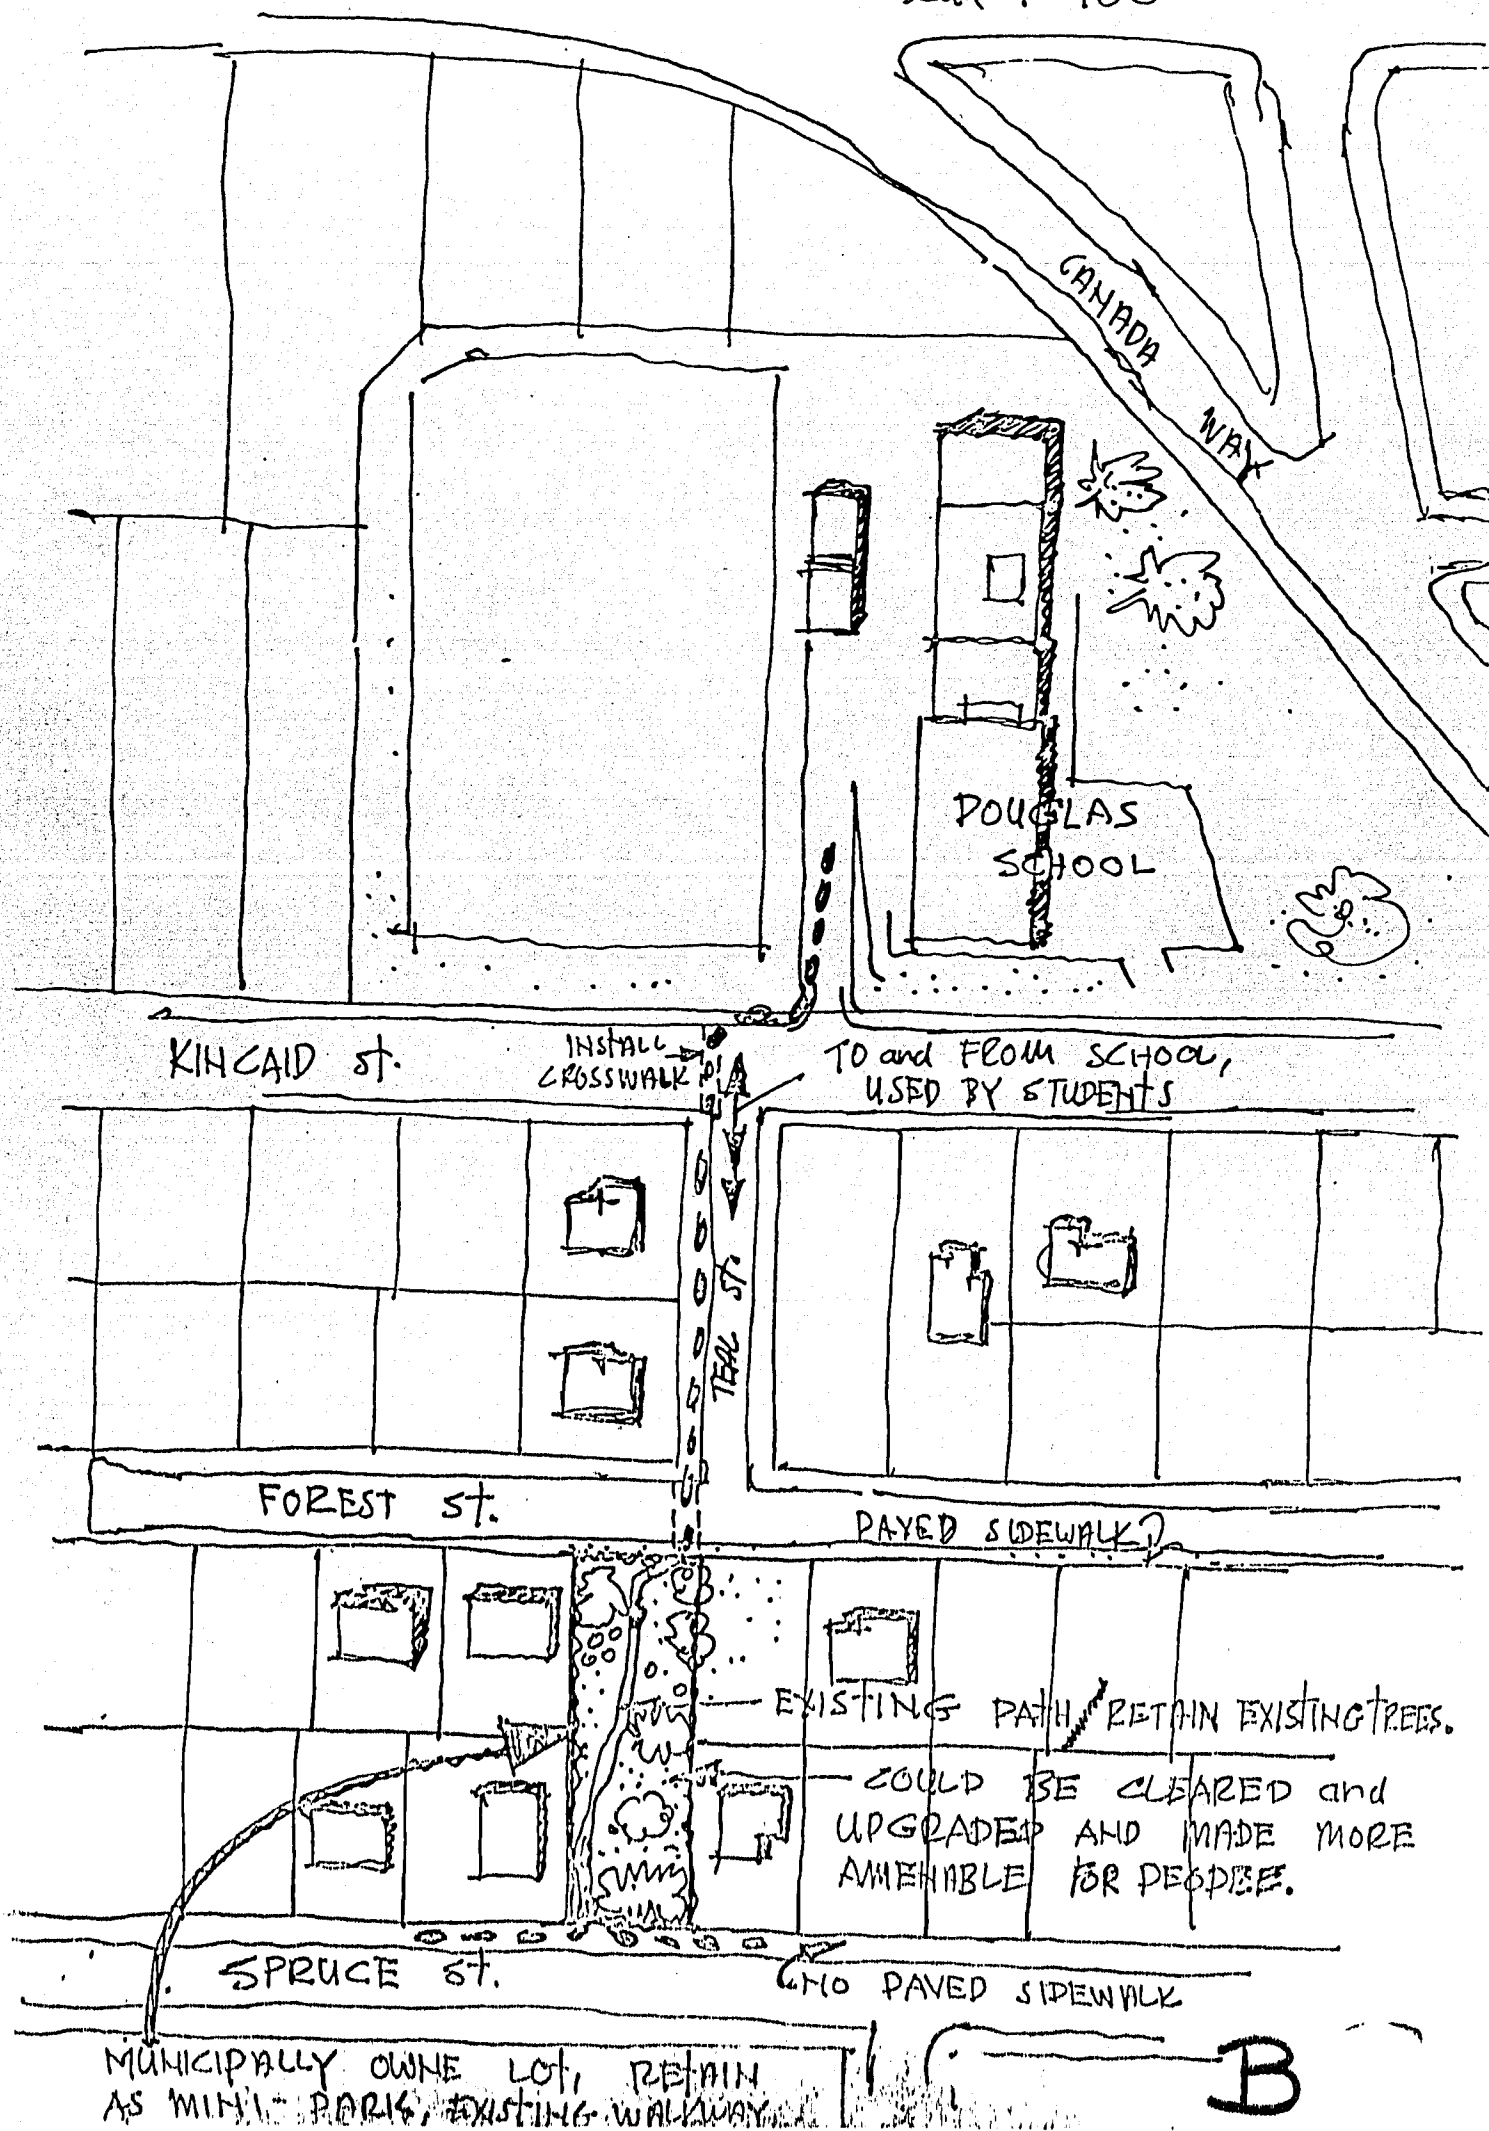 CANADA
WAY
DOUGLAS
SCHOOL
KINCAID St.
INSTALL
CROSSWALK
TO and FROM SCHOOL,
USED BY STUDENTS
TEAL St.
FOREST St.
PAVED SIDEWALK
EXISTING PATH/RETAIN EXISTING TREES.
COULD BE CLEARED and
UPGRADED AND MADE MORE
AMENABLE FOR PEOPLE.
SPRUCE St.
NO PAVED SIDEWALK
MUNICIPALLY OWNE LOT, RETAIN
AS MINI-PARK, EXISTING WALKWAY
B